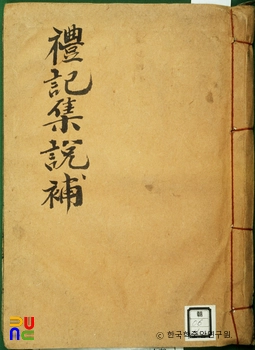 禮記集說補
한국학중앙연구원